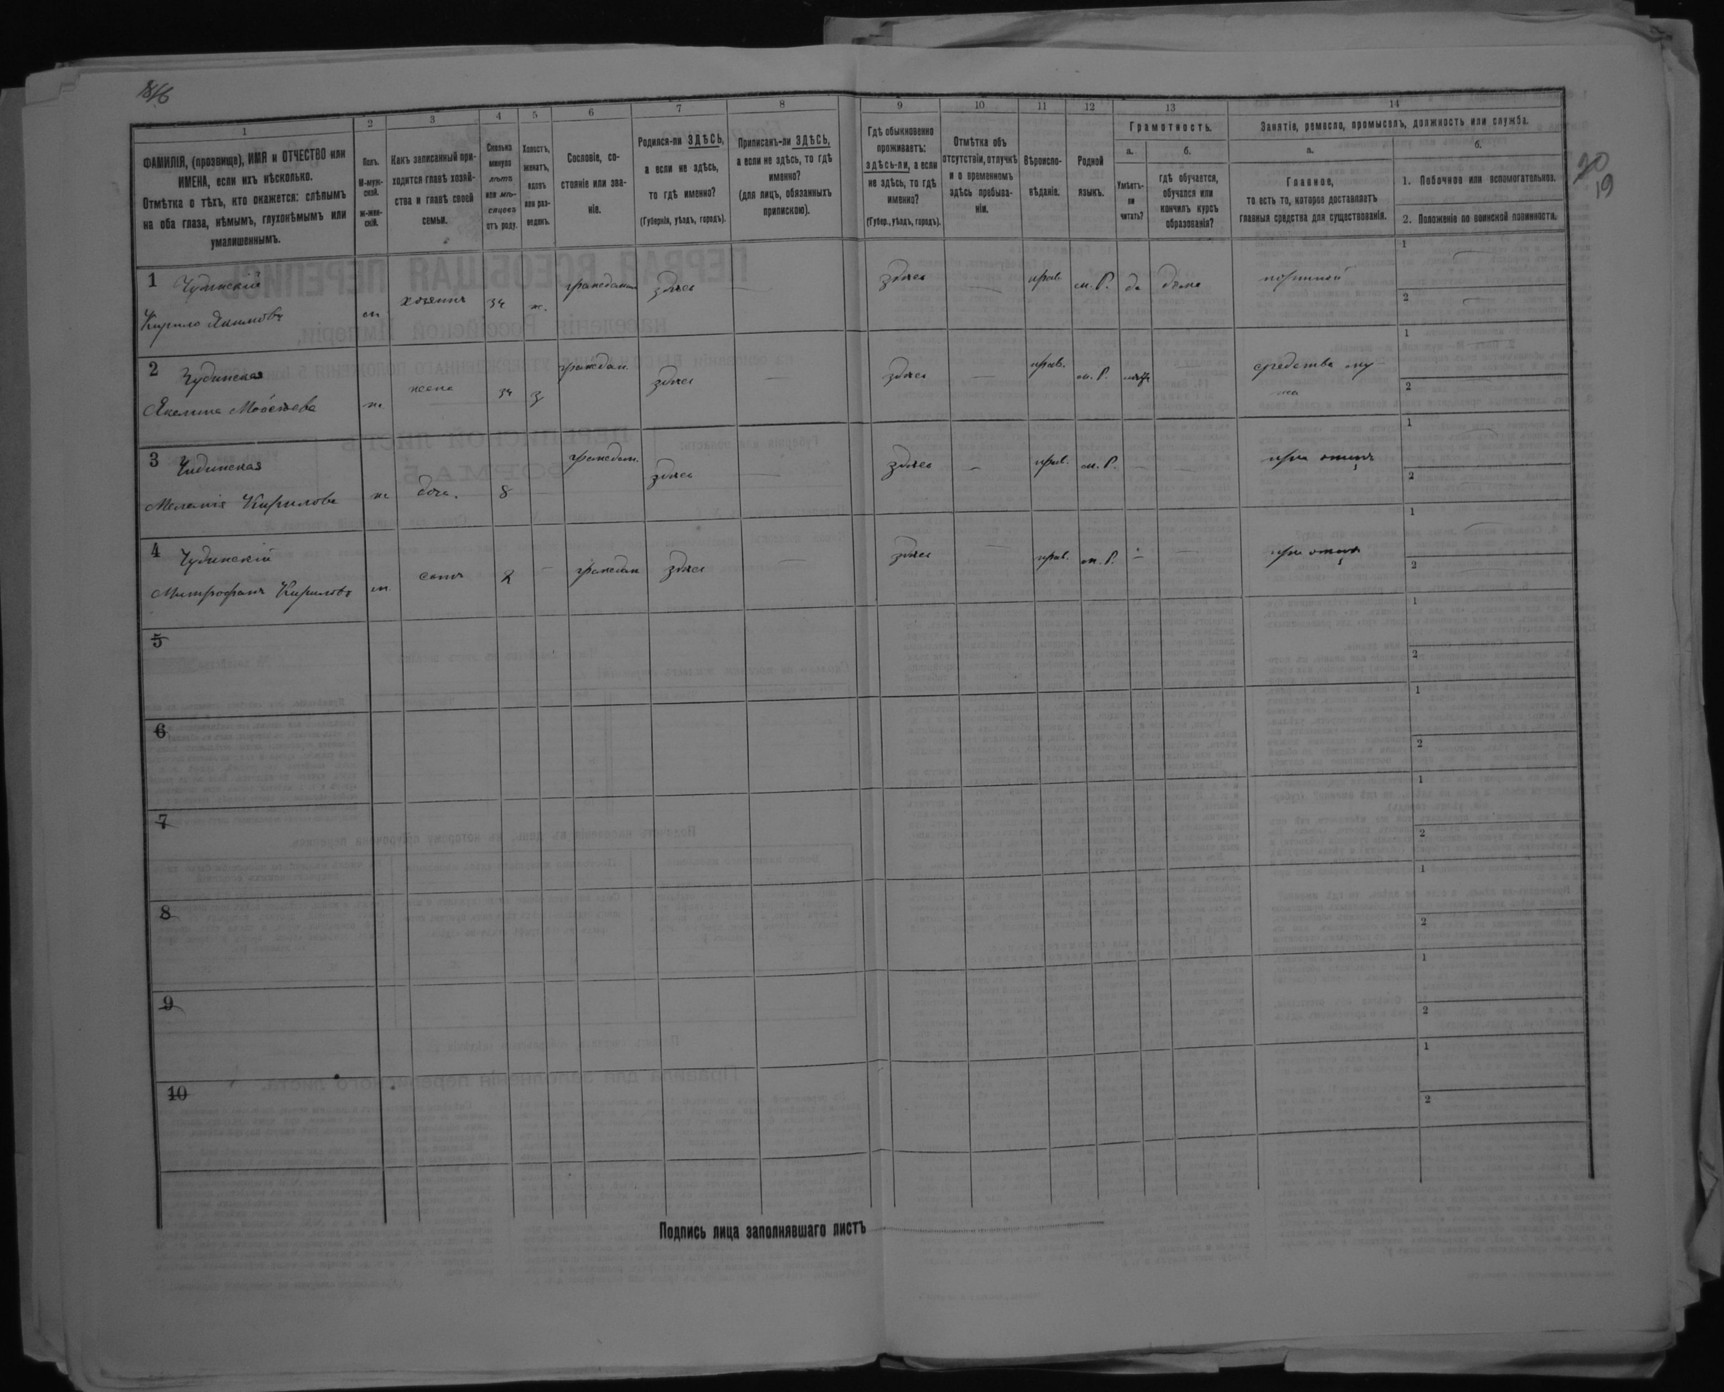 20
19
1 2 3 4 5 6 7 8 9 10 11 12 13 14
ФАМИЛІЯ, (прозвище), ИМЯ и ОТЧЕСТВО или
ИМЕНА, если ихъ нѣсколько.
Отмѣтка о тѣхъ, кто окажется: слѣпымъ
на оба глаза, нѣмымъ, глухонѣмымъ или
умалишеннымъ.
Полъ.
М-муж-
ской.
ж-жен-
скій.
Какъ записанный при-
ходится главѣ хозяй-
ства и главѣ своей
семьи.
Сколько
минуло
лѣтъ
или мѣ-
сяцевъ
отъ роду.
Холостъ,
женатъ,
вдовъ
или раз-
веденъ.
Сословіе, со-
стояніе или зва-
ніе.
Родился-ли ЗДѢСЬ,
а если не здѣсь,
то гдѣ именно?
(Губернія, уѣздъ, городъ).
Приписанъ-ли ЗДѢСЬ,
а если не здѣсь, то гдѣ
именно?
(для лицъ, обязанныхъ
припискою).
Гдѣ обыкновенно
проживаетъ:
здѣсь-ли, а если
не здѣсь, то гдѣ
именно?
(Губер., уѣздъ, городъ).
Отмѣтка объ
отсутствіи, отлучкѣ
и о временномъ
здѣсь пребыва-
ніи.
Вѣроиспо-
вѣданіе.
Родной
языкъ.
Грамотность.
а.
Умѣетъ-
ли
читать?
б.
гдѣ обучается,
обучался или
кончилъ курсъ
образованія?
Занятіе, ремесло, промыселъ, должность или служба.
а.
Главное,
то есть то, которое доставляетъ
главныя средства для существованія.
б.
1. Побочное или вспомогательное.
2. Положеніе по воинской повинности.
1 Чудинскій
Кирило Якимовъ м хозяинъ 34 ж. здѣсь — здѣсь — прав. м. Р. да дома портной 1 — 2 —
2 Чудинская
ж жена 34 з граждан. здѣсь — здѣсь — прав. м. Р. средства му
жа 1 — 2 —
3 Чудинская
Меланія Кирилова ж доч. 8 — граждан. здѣсь — здѣсь — прав. м. Р. — — при отцѣ 1 — 2 —
4 Чудинскій
Митрофанъ Кириловъ м сынъ 2 — граждан здѣсь — здѣсь — прав. м. Р. — — при отцѣ 1 — 2 —
5 1 2
6 1 2
7 1 2
8 1 2
9 1 2
10 1 2
Подпись лица заполнявшаго листъ